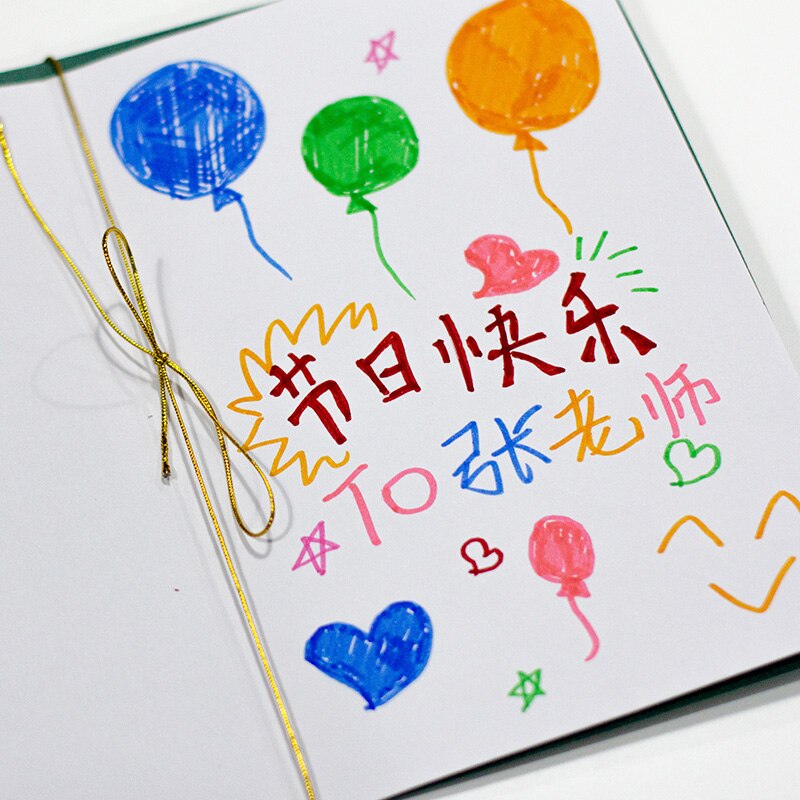 节日快乐
To 张老师